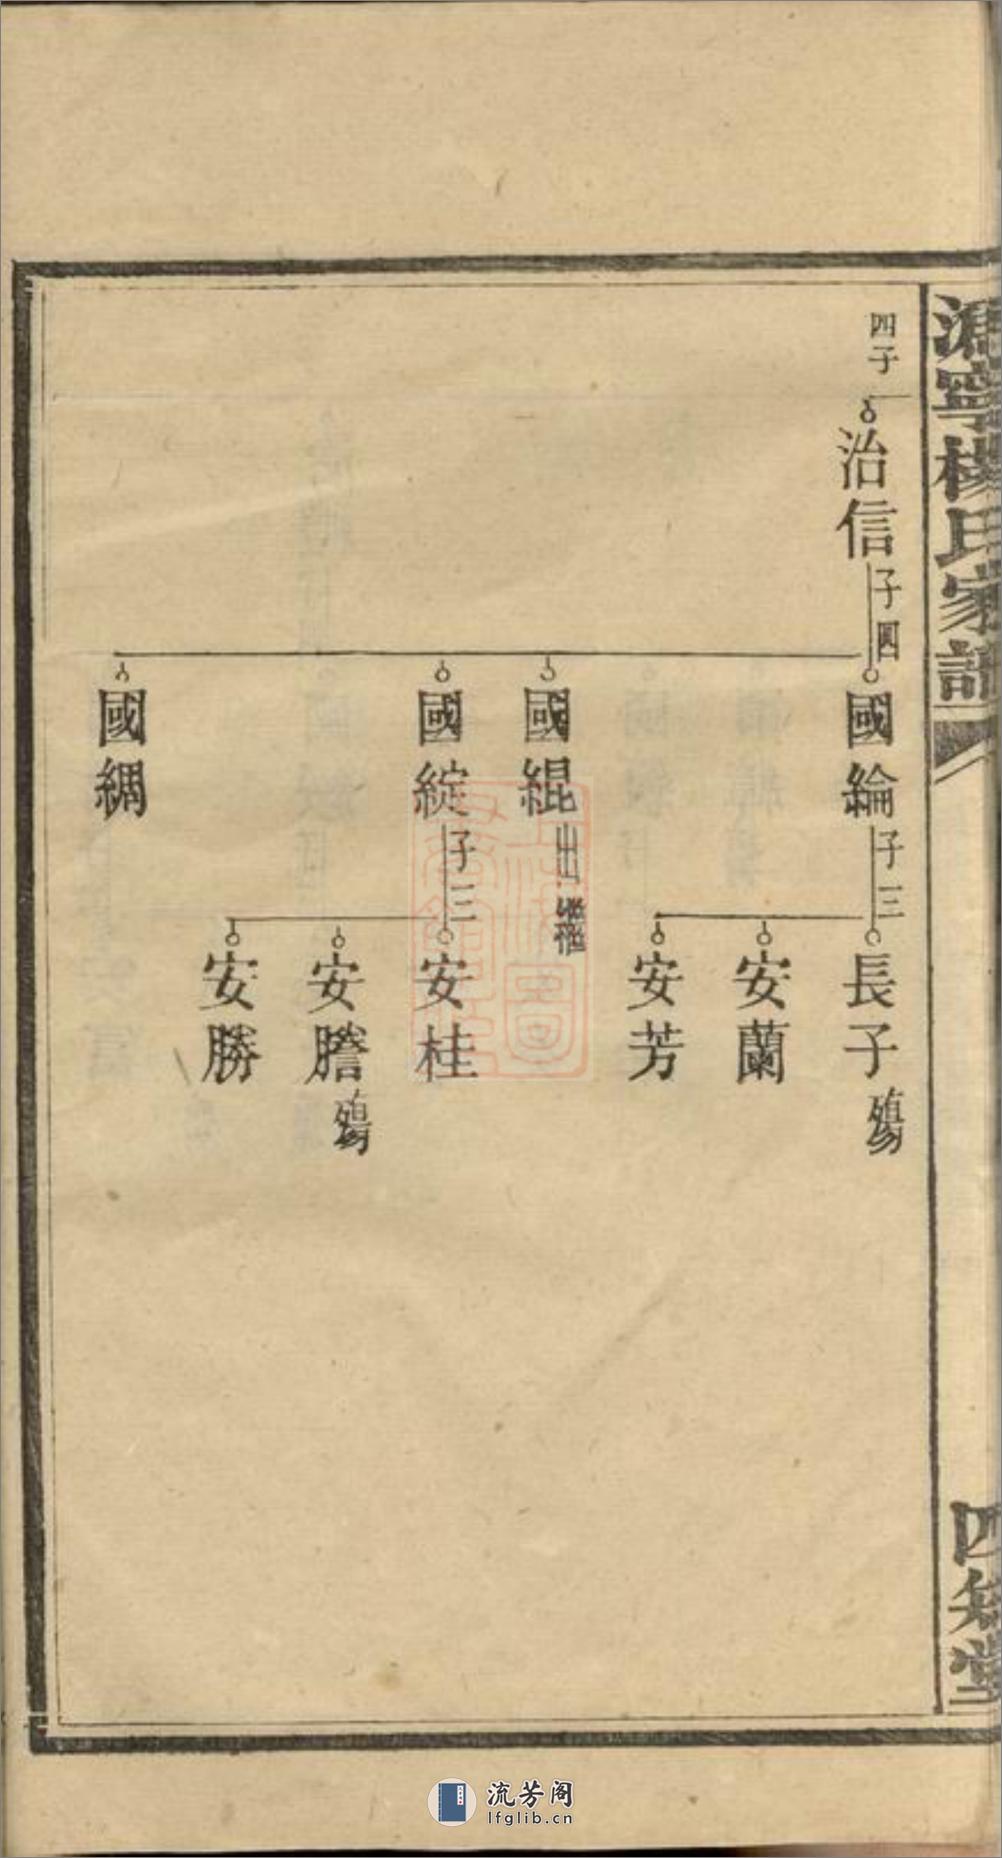 溈寧楊氏家譜
四知堂
四子
治信
子四
國綸
子三
長子
殤
安蘭
安芳
國緄
出繼
國綻
子三
安桂
安謄
殤
安勝
國綢
流芳阁
lfglib.cn